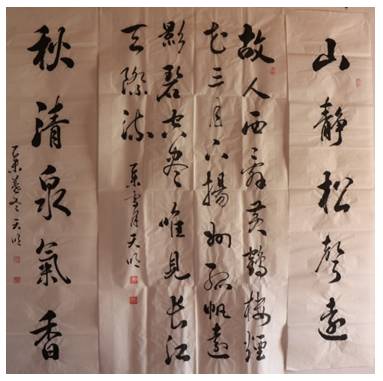 山靜松聲遠
故人西辭黃鶴樓煙
花三月下揚州孤帆遠
影碧空盡唯見長江
天際流
月天明
秋清泉氣香
天明